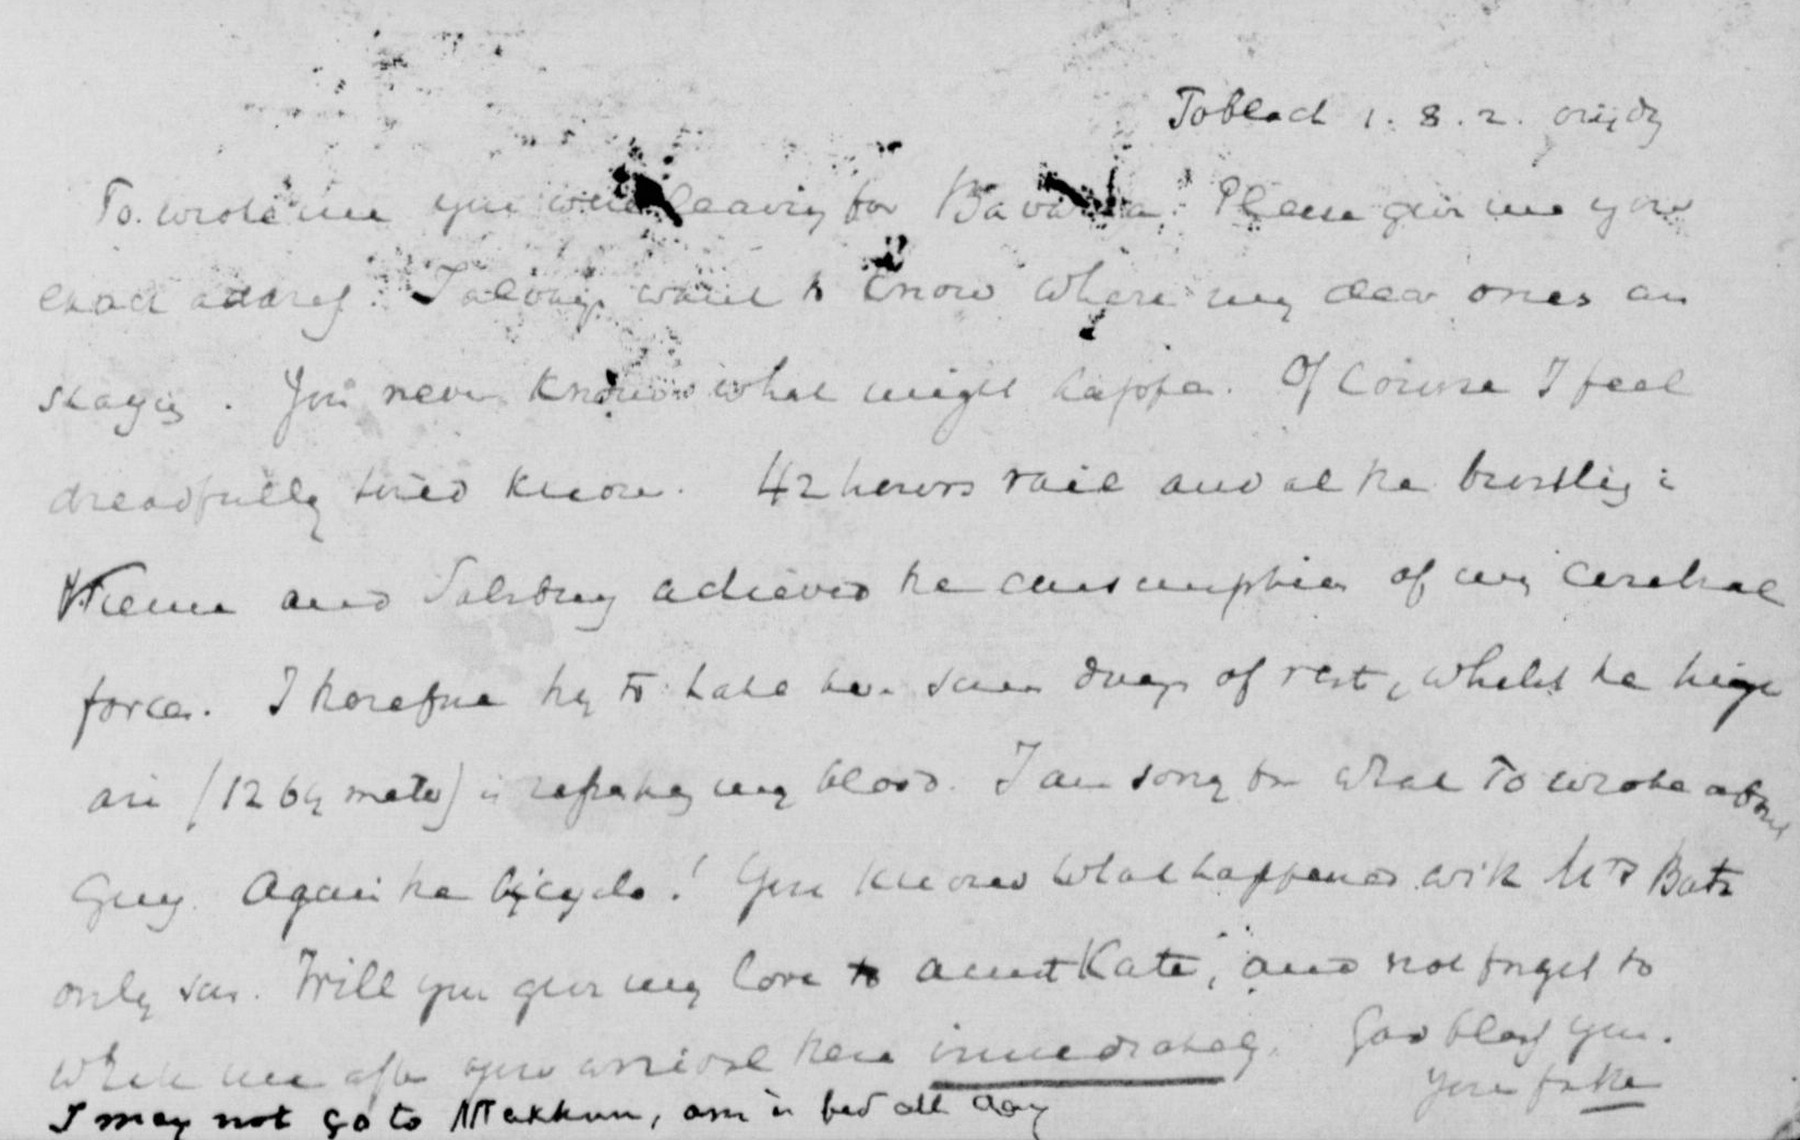 Toblach 1. 8. 2.
To. wrote me you were leaving for Bavaria. Please give me your
exact address. I always want to know where my dear ones are
staying. You never know what might happen. Of course I feel
dreadfully tired know. 42 hours rail and all the bustling in
Vienna and Salzburg achieved the consumption of my cerebral
forces. I therefore try to take here some days of rest, whilst the high
air (1269 meter) is refreshing my blood. I am sorry for what To wrote about
Guy. Again the bicycle! You know what happened with Mrs
only son. Will you give my love to aunt Kate, and not forget to
write me after your arrival there immediately. God bless you.
Your father
I may not go to, am in bed all day